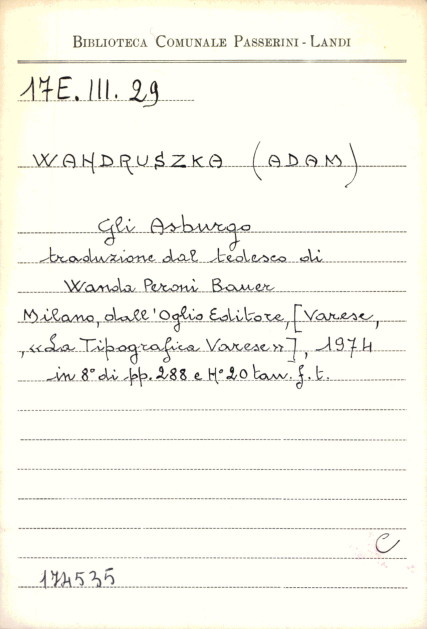 BIBLIOTECA COMUNALE PASSERINI - LANDI
17E. III. 29
WANDRUSZKA (ADAM)
Gli Asburgo
traduzione dal tedesco di
Wanda Peroni Bauer
Milano, dall'Oglio Editore, [Varese,
"La Tipografica Varese"], 1974
in 8° di pp. 288 e N° 20 tav. f. t.
C
174535